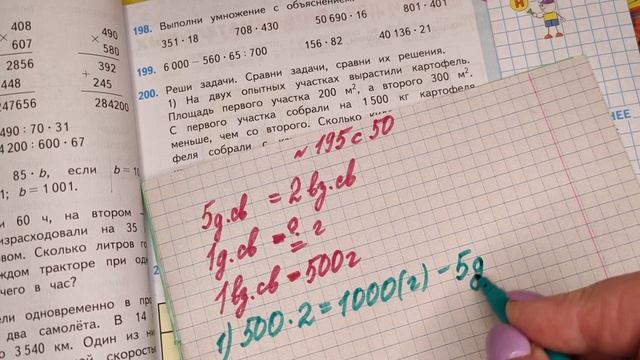 408
× 607
2856
448
247656
490
× 580
392
+ 245
284200
490 : 70 · 31
4 200 : 600 · 67
85 · b, если b = 10
1; b = 1 001.
60 ч, на втором
израсходовали на 35
Сколько литров
тракторе при
чего в час?
одновременно в
два самолёта. В 14
3 540 км. Один из
198. Выполни умножение с объяснением
351 · 18 708 · 430 50 690 · 16 801 · 401
199. 6 000 − 560 · 65 : 700 156 · 82 40 136 · 21
200. Реши задачи. Сравни задачи, сравни их решения.
1) На двух опытных участках вырастили картофель.
Площадь первого участка 200 м², а второго 300 м².
С первого участка собрали на 1 500 кг картофеля
меньше, чем со второго. Сколько
феля собрали с
N 195 с 50
5д.св = 2вз.св
1д.св - ? г
1вз.св - 500г
1) 500 · 2 = 1000(г) - 5д.